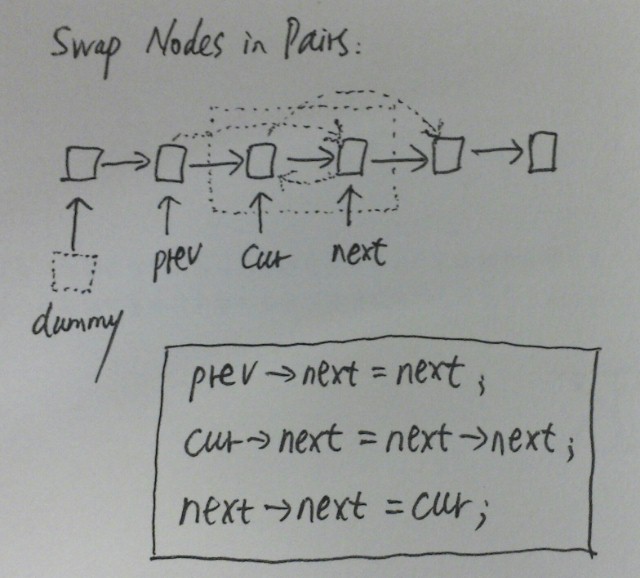 Swap Nodes in Pairs:
prev cur next
dummy
prev→next = next;
cur→next = next→next;
next→next = cur;